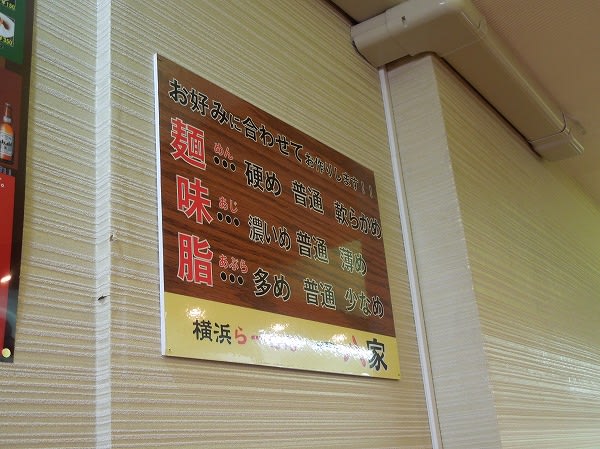 お好みに合わせてお作りします！！
めん
麺…硬め 普通 軟らかめ
あじ
味…濃いめ 普通 薄め
あぶら
脂…多め 普通 少なめ
横浜ら 家